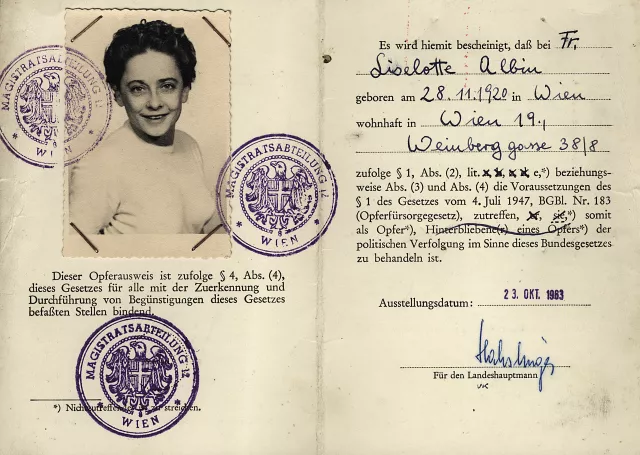 MAGISTRATSABTEILUNG 12
* WIEN *
MAGISTRATSABTEILUNG 12
* WIEN *
Dieser Opferausweis ist zufolge § 4, Abs. (4),
dieses Gesetzes für alle mit der Zuerkennung und
Durchführung von Begünstigungen dieses Gesetzes
befaßten Stellen bindend.
MAGISTRATSABTEILUNG 12
* WIEN *
*) Nichtzutreffendes ist zu streichen.
Es wird hiemit bescheinigt, daß bei Fr.
Liselotte Albin
geboren am 28.11.1920 in Wien
wohnhaft in Wien 19.,
Weinberggasse 38/8
zufolge § 1, Abs. (2), lit. e,*) beziehungs-
weise Abs. (3) und Abs. (4) die Voraussetzungen des
§ 1 des Gesetzes vom 4. Juli 1947, BGBl. Nr. 183
(Opferfürsorgegesetz), zutreffen, er, sie,*) somit
als Opfer*), Hinterbliebene(r) eines Opfers*) der
politischen Verfolgung im Sinne dieses Bundesgesetzes
zu behandeln ist.
Ausstellungsdatum: 23. OKT. 1963
Für den Landeshauptmann
VK